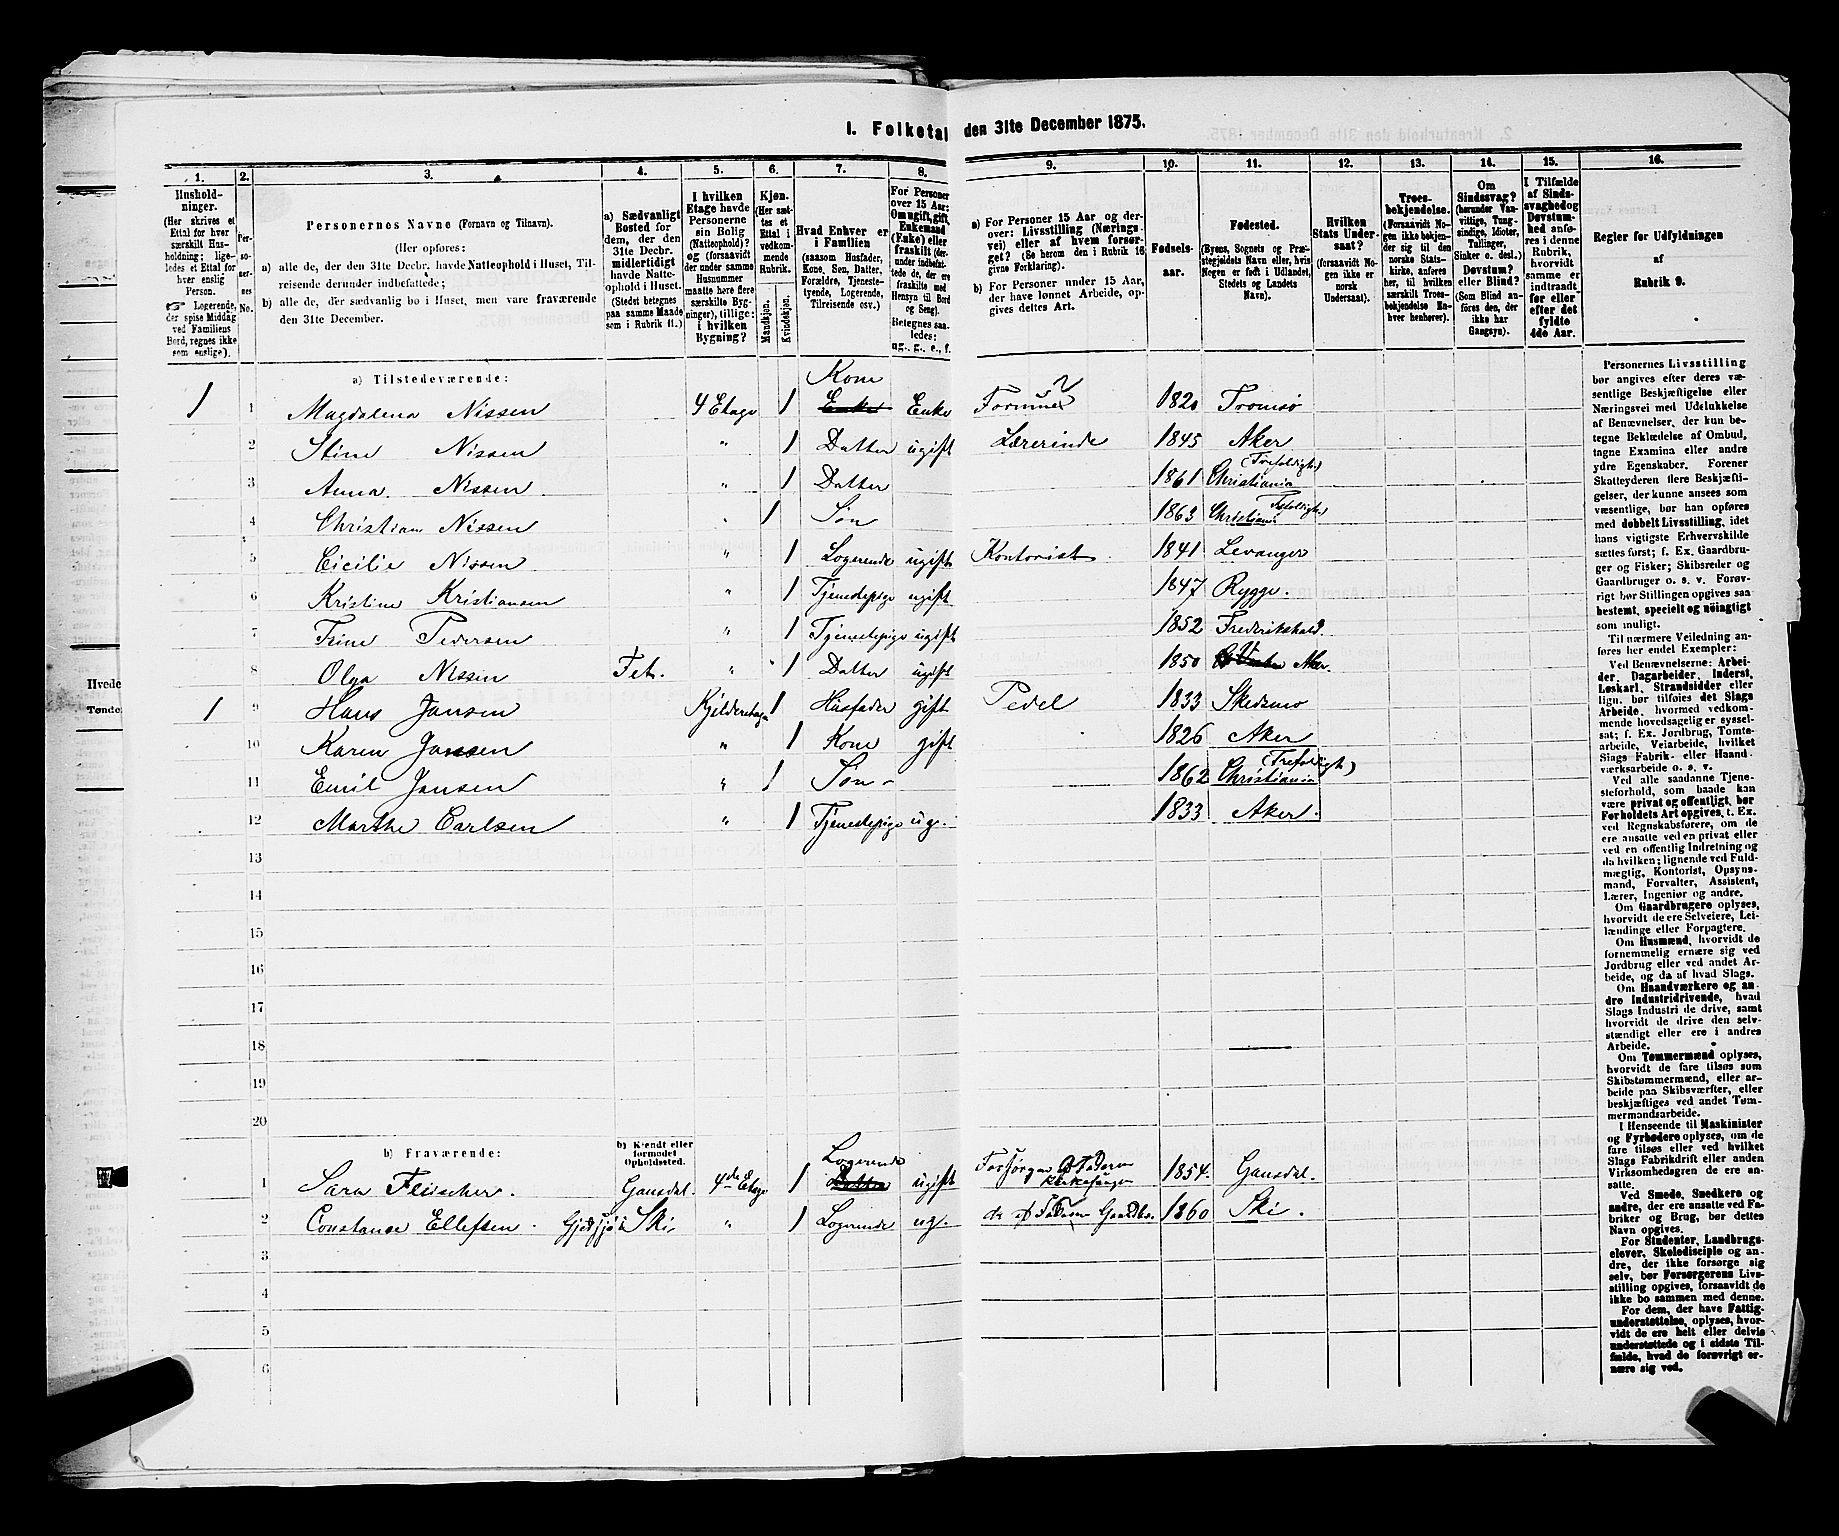 I. Folketal den 31te December 1875.
1. 2. 3. 4. 5. 6. 7. 8. 9. 10. 11. 12. 13. 14. 15. 16.
Hushold-
ninger.
(Her skrives et
Ettal for hver
særskilt Hus-
holdning; lige-
ledes et Ettal for
hver enslig
Person.
☞ Logerende,
der spise Middag
ved Familiens
Bord, regnes ikke
som enslige).
Per-
so-
ner-
nes
No.
Personernes Navne (Fornavn og Tilnavn).
(Her opføres:
a) alle de, der den 31te Decbr. havde Natteophold i Huset, Til-
reisende derunder indbefattede;
b) alle de, der sædvanlig bo i Huset, men vare fraværende
den 31te December.
a) Sædvanligt
Bosted for
dem, der den
31te Decbr.
midlertidigt
havde Natte-
ophold i Huset.
(Stedet betegnes
paa samme Maade
som i Rubrik 11.)
I hvilken
Etage havde
Personerne
sin Bolig
(Natteophold)?
og (forsaavidt
der under samme
Husnummer
maatte høre flere
særskilte Byg-
ninger), tillige:
i hvilken
Bygning?
Kjøn.
(Her sæt-
tes et
Ettal i
vedkom-
mende
Rubrik.
Mandkjøn.
Kvindekjøn.
Hvad Enhver er
i Familien
(saasom Husfader,
Kone, Søn, Datter,
Forældre, Tjeneste-
tyende, Logerende,
Tilreisende osv.)
For Personer
over 15 Aar:
Om ugift, gift,
Enkemand
(Enke) eller
fraskilt
(derunder indbefat-
tede de, der ere
fraskilte med
Hensyn til Bord
og Seng).
Betegnes saa-
ledes:
ug., g., e., f.
a) For Personer 15 Aar og der-
over: Livsstilling (Nærings-
vei) eller af hvem forsør-
get? (Se herom den i Rubrik 16
givne Forklaring).
b) For Personer under 15 Aar,
der have lønnet Arbeide, op-
gives dettes Art.
Fødsels-
aar.
Fødested.
(Byens, Sognets og Præ-
stegjeldets Navn eller, hvis
Nogen er født i Udlandet,
Stedets og Landets
Navn).
Hvilken
Stats Under-
saat?
(forsaavidt No-
gen ikke er
norsk
Undersaat).
Troes-
bekjendelse.
(Forsaavidt No-
gen ikke bekjen-
der sig til den
norske Stats-
kirke, anføres
her, til hvilken
særskilt Troes-
bekjendelse Na-
ver henhører).
Om
Sindssvag?
(herunder Van-
vittige, Tung-
sindige, Idioter,
Tullinger,
Sinker o. desl.).
Døvstum?
eller Blind?
(Som Blind an-
føres den, der
ikke har
Gangsyn).
I Tilfælde
af Sinds-
svaghed og
Døvstum-
hed anfø-
res i denne
Rubrik,
hvorvidt
samme er
indtraadt
før eller
efter det
fyldte
4de Aar.
Regler for Udfyldningen
af
Rubrik 9.
a) Tilstedeværende:
Kone
1 1 Magdalena Nissen 4 Etage 1 Enke Enke Formue 1820 Tromsø
2 Stine Nissen " 1 Datter ugift Lærerinde 1845 Aker
3 Anna Nissen " 1 Datter 1861 Christiania (Trefoldigh.)
4 Christian Nissen " 1 Søn 1863 Christiania Trefoldigh.)
5 Cicilie Nissen " 1 Logerende ugift Kontorist 1841 Levanger
6 Kristine Kristiansen " 1 Tjenestepige ugift 1847 Rygge.
7 Trine Pedersen " 1 Tjenestepige ugift 1852 Frederikshald.
8 Olga Nissen Fet. " 1 Datter ugift 1850 Aker
1 9 Hans Jansen Kjelderetage 1 Husfader gift Pedel 1833 Skedsmo
10 Karen Jansen " 1 Kone gift 1826 Aker
11 Emil Jansen " 1 Søn 1862 Christiania (Trefoldigh)
12 Marthe Carlsen " 1 Tjenestepige ug. 1833 Aker.
13
14
15
16
17
18
19
20
b) Fraværende:
b) Kjendt eller
formodet
Opholdssted.
Logerende
1 Sara Fleischer. Gansdal. 4de Etage 1 Datter ugift Forsørges af Faderen 1854. Gansdal.
2 Constance Ellefsen. Ski " 1 Logerende ug. do af Faderen Gaardbr. 1860 Ski.
3
4
5
6
Personernes Livsstilling
bør angives efter deres væ-
sentlige Beskjæftigelse eller
Næringsvei med Udelukkelse
af Benævnelser, der kun be-
tegne Beklædelse af Ombud,
tagne Examina eller andre
ydre Egenskaber. Forener
Skatteyderen flere Beskjæfti-
gelser, der kunne ansees som
væsentlige, bør han opføres
med dobbelt Livsstilling, idet
hans vigtigste Erhvervskilde
sættes først; f. Ex. Gaardbru-
ger og Fisker; Skibsreder og
Gaardbruger o. s. v. Forøv-
rigt bør Stillingen opgives saa
bestemt, specielt og nøiagtigt
som muligt.
Til nærmere Veiledning an-
føres her endel Exempler:
Ved Benævnelserne: Arbei-
der, Dagarbeider, Inderst,
Løskarl, Strandsidder eller
lign. bør tilføies det Slags
Arbeide, hvormed vedkom-
mende hovedsagelig er syssel-
sat; f. Ex. Jordbrug, Tomte-
arbeide, Veiarbeide, hvilket
Slags Fabrik- eller Haand-
værksarbeide o. s. v.
Ved alle saadanne Tjene-
steforhold, som baade kan
være privat og offentligt, bør
Forholdets Art opgives, t. Ex.
ved Regnskabsførere, om de
ere ansatte ved en privat eller
ved en offentlig Indretning og
da hvilken; lignende ved Fuld-
mægtig, Kontorist, Opsyns-
mand, Forvalter, Assistent,
Lærer, Ingeniør og andre.
Om Gaardbrugere oplyses,
hvorvidt de ere Selveiere, Lei-
lændinge eller Forpagtere.
Om Husmænd, hvorvidt de
fornemmelig ernære sig ved
Jordbrug eller ved andet Ar-
beide, og da af hvad Slags.
Om Haandværkere og an-
dre Industridrivende, hvad
Slags Industri de drive, samt
hvorvidt de drive den selv-
stændigt eller ere i andres
Arbeide.
Om Tømmermænd oplyses,
hvorvidt de fare tilsøs som
Skibstømmermænd, eller ar-
beide paa Skibsværfter, eller
beskjæftiges ved andet Tøm-
mermandsarbeide.
I Henseende til Maskinister
og Fyrbødere oplyses, om de
fare tilsøs eller ved hvilket
Slags Fabrikdrift eller anden
Virksomhedsgren de ere an-
satte.
Ved Smede, Snedkere og
andre, der ere ansatte ved Fa-
briker og Brug, bør dettes
Navn opgives.
For Studenter, Landbrugs-
elever, Skoledisciple og an-
dre, der ikke forsørge sig
selv, bør Forsørgerens Livs-
stilling opgives, forsaavidt de
ikke bo sammen med denne.
For dem, der have Fattig-
understøttelse, oplyses, hvor-
vidt de ere helt eller delvis
understøttede og i sidste Til-
fælde, hvad de forøvrigt er-
nære sig ved.